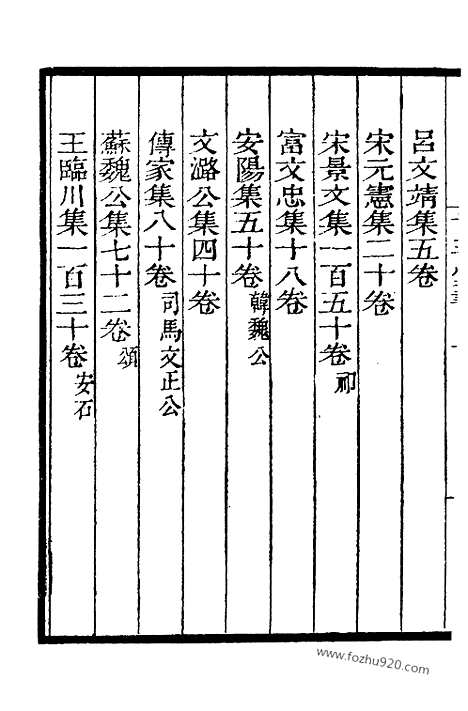 呂文靖集五卷
宋元憲集二十卷
宋景文集一百五十卷祁
富文忠集十八卷
安陽集五十卷韓魏公
文潞公集四十卷
傳家集八十卷司馬文正公
蘇魏公集七十二卷頌
王臨川集一百三十卷安石
www.fozhu920.com